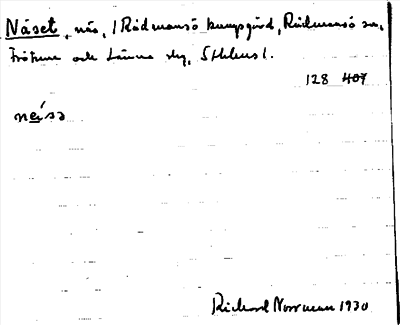 Näset, näs, i Rådmansö kungsgård, Rådmansö sn,
Frötuna och Länna skg, Sthlms l.
128 407
neisa
Richard Norrman 1930